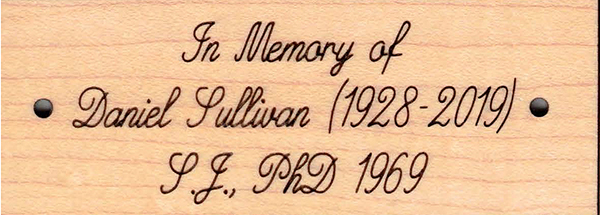 In Memory of
Daniel Sullivan (1928-2019)
S.J., PhD 1969